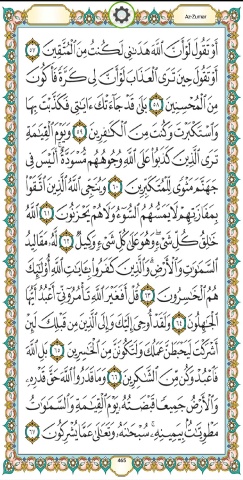 Az-Zumar
أَوْ تَقُولَ لَوْ أَنَّ ٱللَّهَ هَدَىٰنِى لَكُنتُ مِنَ ٱلْمُتَّقِينَ ٥٧
أَوْ تَقُولَ حِينَ تَرَى ٱلْعَذَابَ لَوْ أَنَّ لِى كَرَّةً فَأَكُونَ
مِنَ ٱلْمُحْسِنِينَ ٥٨ بَلَىٰ قَدْ جَآءَتْكَ ءَايَٰتِى فَكَذَّبْتَ بِهَا
وَٱسْتَكْبَرْتَ وَكُنتَ مِنَ ٱلْكَٰفِرِينَ ٥٩ وَيَوْمَ ٱلْقِيَٰمَةِ
تَرَى ٱلَّذِينَ كَذَبُوا۟ عَلَى ٱللَّهِ وُجُوهُهُم مُّسْوَدَّةٌ ۚ أَلَيْسَ فِى
جَهَنَّمَ مَثْوًى لِّلْمُتَكَبِّرِينَ ٦٠ وَيُنَجِّى ٱللَّهُ ٱلَّذِينَ ٱتَّقَوْا۟
بِمَفَازَتِهِمْ لَا يَمَسُّهُمُ ٱلسُّوٓءُ وَلَا هُمْ يَحْزَنُونَ ٦١ ٱللَّهُ
خَٰلِقُ كُلِّ شَىْءٍ ۖ وَهُوَ عَلَىٰ كُلِّ شَىْءٍ وَكِيلٌ ٦٢ لَّهُۥ مَقَالِيدُ
ٱلسَّمَٰوَٰتِ وَٱلْأَرْضِ ۗ وَٱلَّذِينَ كَفَرُوا۟ بِـَٔايَٰتِ ٱللَّهِ أُو۟لَٰٓئِكَ
هُمُ ٱلْخَٰسِرُونَ ٦٣ قُلْ أَفَغَيْرَ ٱللَّهِ تَأْمُرُوٓنِّىٓ أَعْبُدُ أَيُّهَا
ٱلْجَٰهِلُونَ ٦٤ وَلَقَدْ أُوحِىَ إِلَيْكَ وَإِلَى ٱلَّذِينَ مِن قَبْلِكَ لَئِنْ
أَشْرَكْتَ لَيَحْبَطَنَّ عَمَلُكَ وَلَتَكُونَنَّ مِنَ ٱلْخَٰسِرِينَ ٦٥ بَلِ ٱللَّهَ
فَٱعْبُدْ وَكُن مِّنَ ٱلشَّٰكِرِينَ ٦٦ وَمَا قَدَرُوا۟ ٱللَّهَ حَقَّ قَدْرِهِۦ
وَٱلْأَرْضُ جَمِيعًا قَبْضَتُهُۥ يَوْمَ ٱلْقِيَٰمَةِ وَٱلسَّمَٰوَٰتُ
مَطْوِيَّٰتٌۢ بِيَمِينِهِۦ ۚ سُبْحَٰنَهُۥ وَتَعَٰلَىٰ عَمَّا يُشْرِكُونَ ٦٧
465